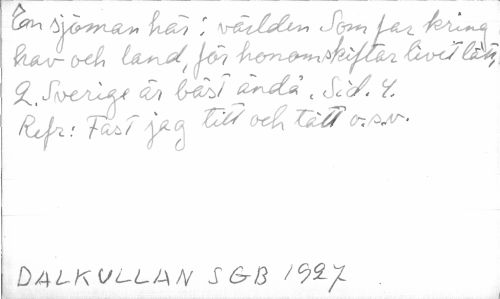 En sjöman här i världen Som far kring
hav och land, för honom skiftar livet lätt,
2. Sverige är bäst ändå. Sid. 4.
Refr: Fast jag titt och tätt o.s.v.
DALKULLAN SGB 1927